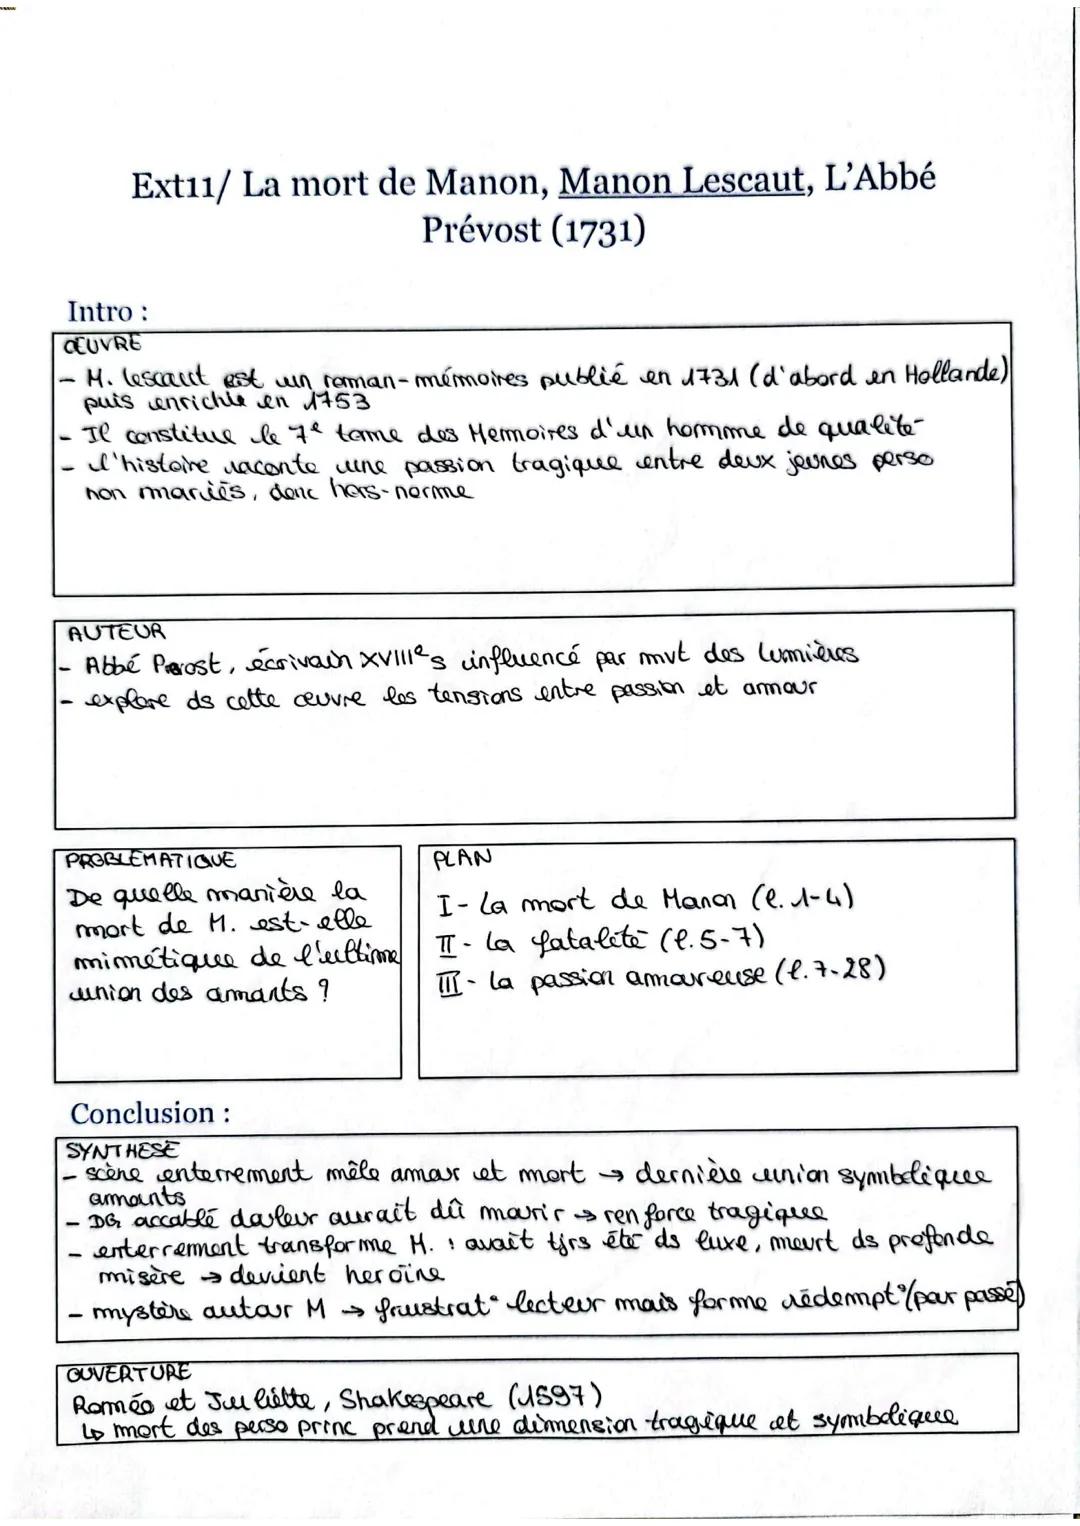 Ext11/ La mort de Manon, Manon Lescaut, L'Abbé
Prévost (1731)
Intro :
ŒUVRE
- M. lescaut est un roman-mémoires publié en 1731 (d'abord en Hollande)
puis enrichie en 1753
- Il constitue le 7e tome des Memoires d'un homme de qualité
- l'histoire raconte une passion tragique entre deux jeunes perso
non mariés, donc hors-norme
AUTEUR
- Abbé Prevost, écrivain XVIIIe s influencé par mvt des lumières
- explore ds cette œuvre les tensions entre passion et amour
PROBLEMATIQUE
De quelle manière la
mort de M. est-elle
mimétique de l'ultime
union des amants ?
PLAN
I - La mort de Manon (l. 1-4)
II - La fatalité (l. 5-7)
III - La passion amoureuse (l. 7-28)
Conclusion :
SYNTHESE
- scène enterrement mêle amour et mort → dernière union symbolique
amants
- DG accablé douleur aurait dû mourir → renforce tragique
- enterrement transforme M. : avait tjrs été ds luxe, meurt ds profonde
misère → devient heroïne
- mystère autour M → frustrat° lecteur mais forme rédempt° (par passé)
OUVERTURE
Roméo et Juliette, Shakespeare (1597)
↳ mort des perso princ prend une dimension tragique et symbolique